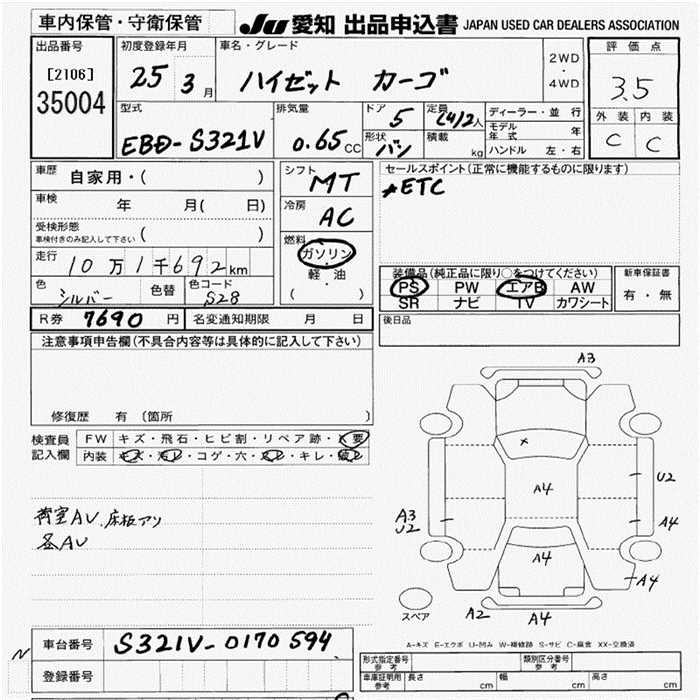 車内保管・守衛保管
JU 愛知 出品申込書 JAPAN USED CAR DEALERS ASSOCIATION
出品番号
[2106]
35004
初度登録年月
25 3月
車名・グレード
ハイゼット カーゴ
2WD
・
4WD
評価点
3.5
外装 内装
C C
型式
EBD-S321V
排気量
0.65 CC
ドア 5
形状 バン
定員 (4)/2人
積載 kg
ディーラー・並行
モデル年式 年
ハンドル 左・右
車歴 自家用・( )
車検 年 月( 日)
受検形態
車検付きのみ記入して下さい ( )
走行 10万1千692km
色 シルバー 色替 色コード S28
シフト MT
冷房 AC
燃料
ガソリン
・
軽・油
( )
セールスポイント(正常に機能するものに限ります)
*ETC
装備品(純正品に限り○をつけてください)
PS PW エアB AW
SR ナビ TV カワシート
新車保証書
有・無
後日品
R券 7690円 名変通知期限 月 日
注意事項申告欄(不具合内容等は具体的に記入して下さい)
修復歴 有 (箇所 )
検査員記入欄
FW キズ・飛石・ヒビ割・リペア跡・X要
内装 キズ・汚レ・コゲ・穴・スレ・キレ・破レ
荷室AU、床板アリ
各AU
A3
×
A4
U2
A3
U2
A4
A4
A4
A2
A4
スペア
A-キズ E-エクボ U-凹み W-補修跡 S-サビ C-腐食 XX-交換済
N
車台番号 S321V-0170594
登録番号
形式指定番号 参考
類別区分番号 参考
車庫証明用 参考 長さ cm 幅 cm 高さ cm